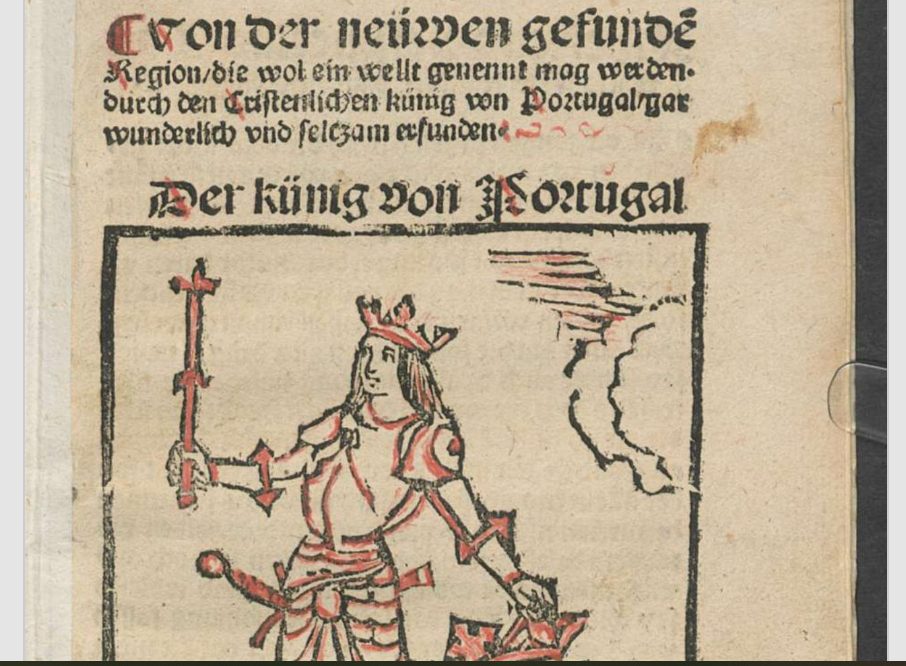 Von der neüwen gefundē
Region/die wol ein wellt genennt mag werden·
durch den Cristenlichen künig von Portugal/gar
wunderlich vnd seltzam erfunden·
Der künig von Portugal